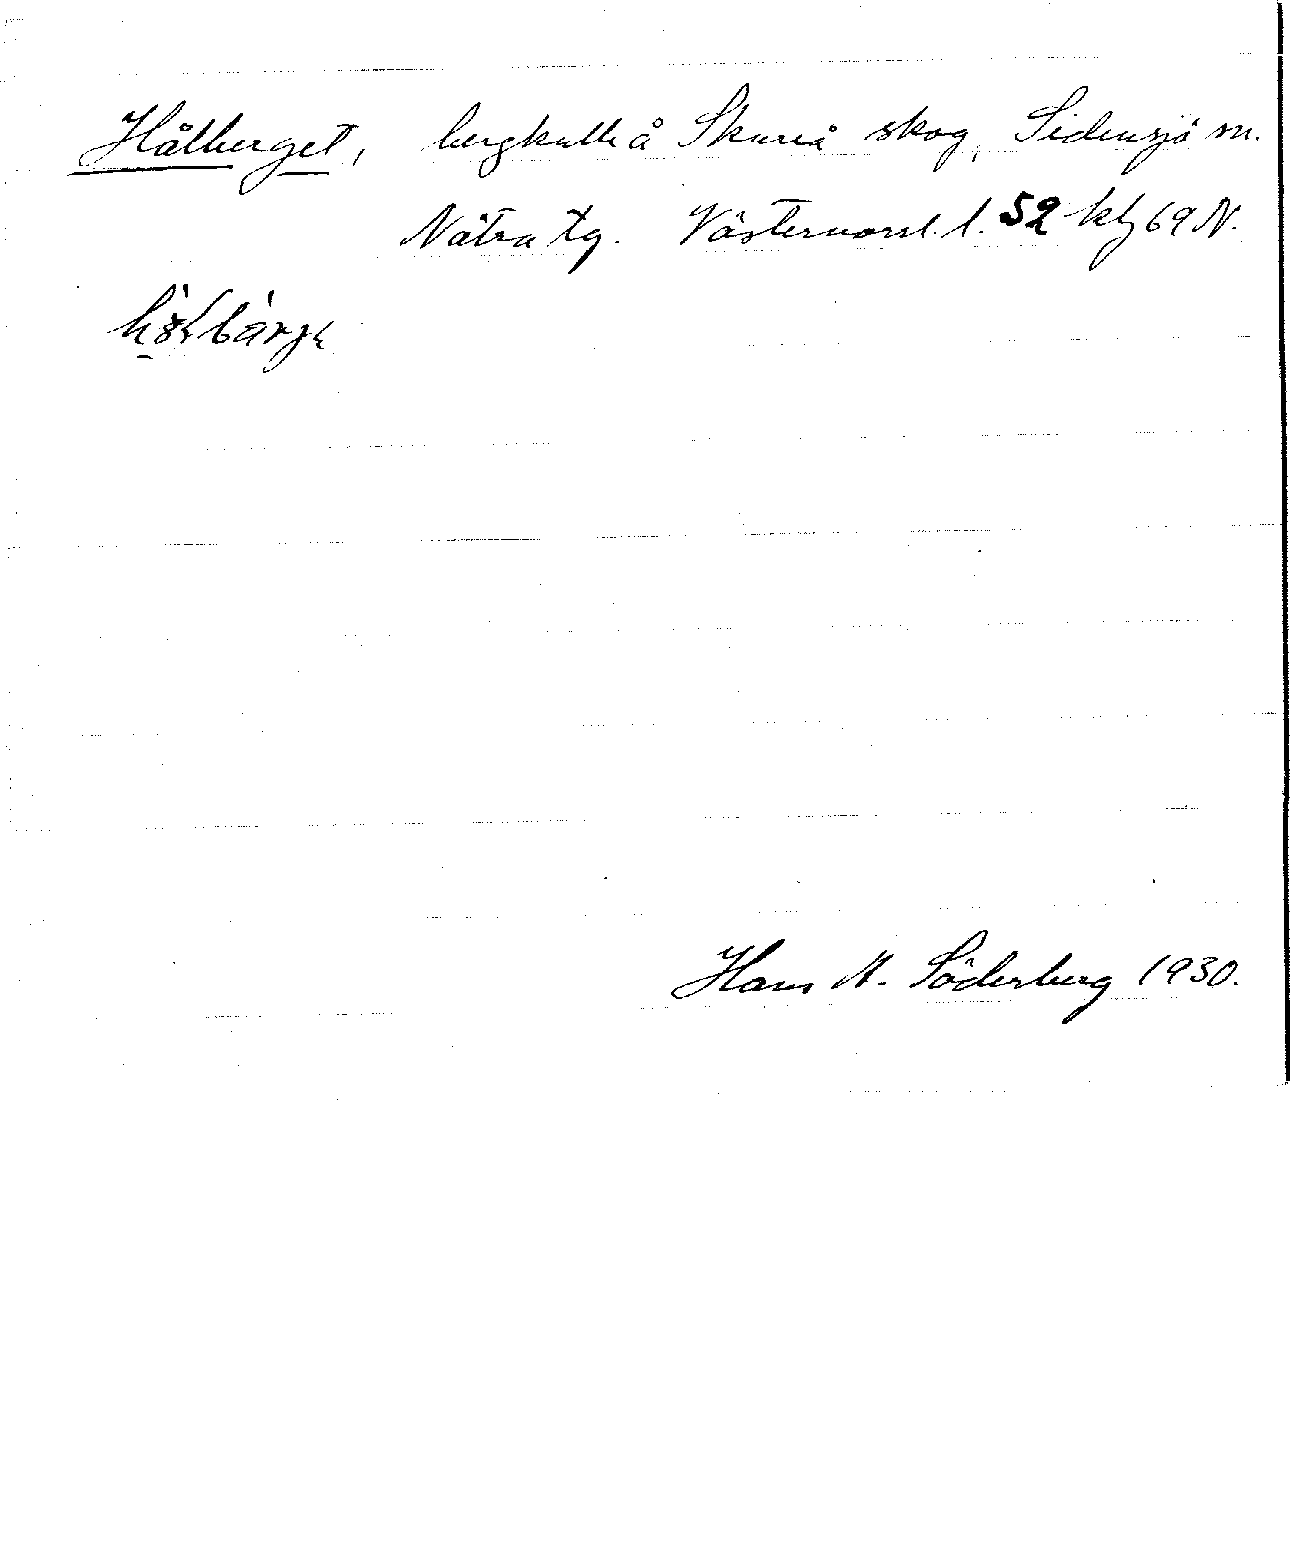 Hålberget, bergkulle å Skureå skog, Sidensjö sn.
Nätra tg. Västernorrl. l. 52 kbl 69 N.
Hans A. Söderberg 1930.